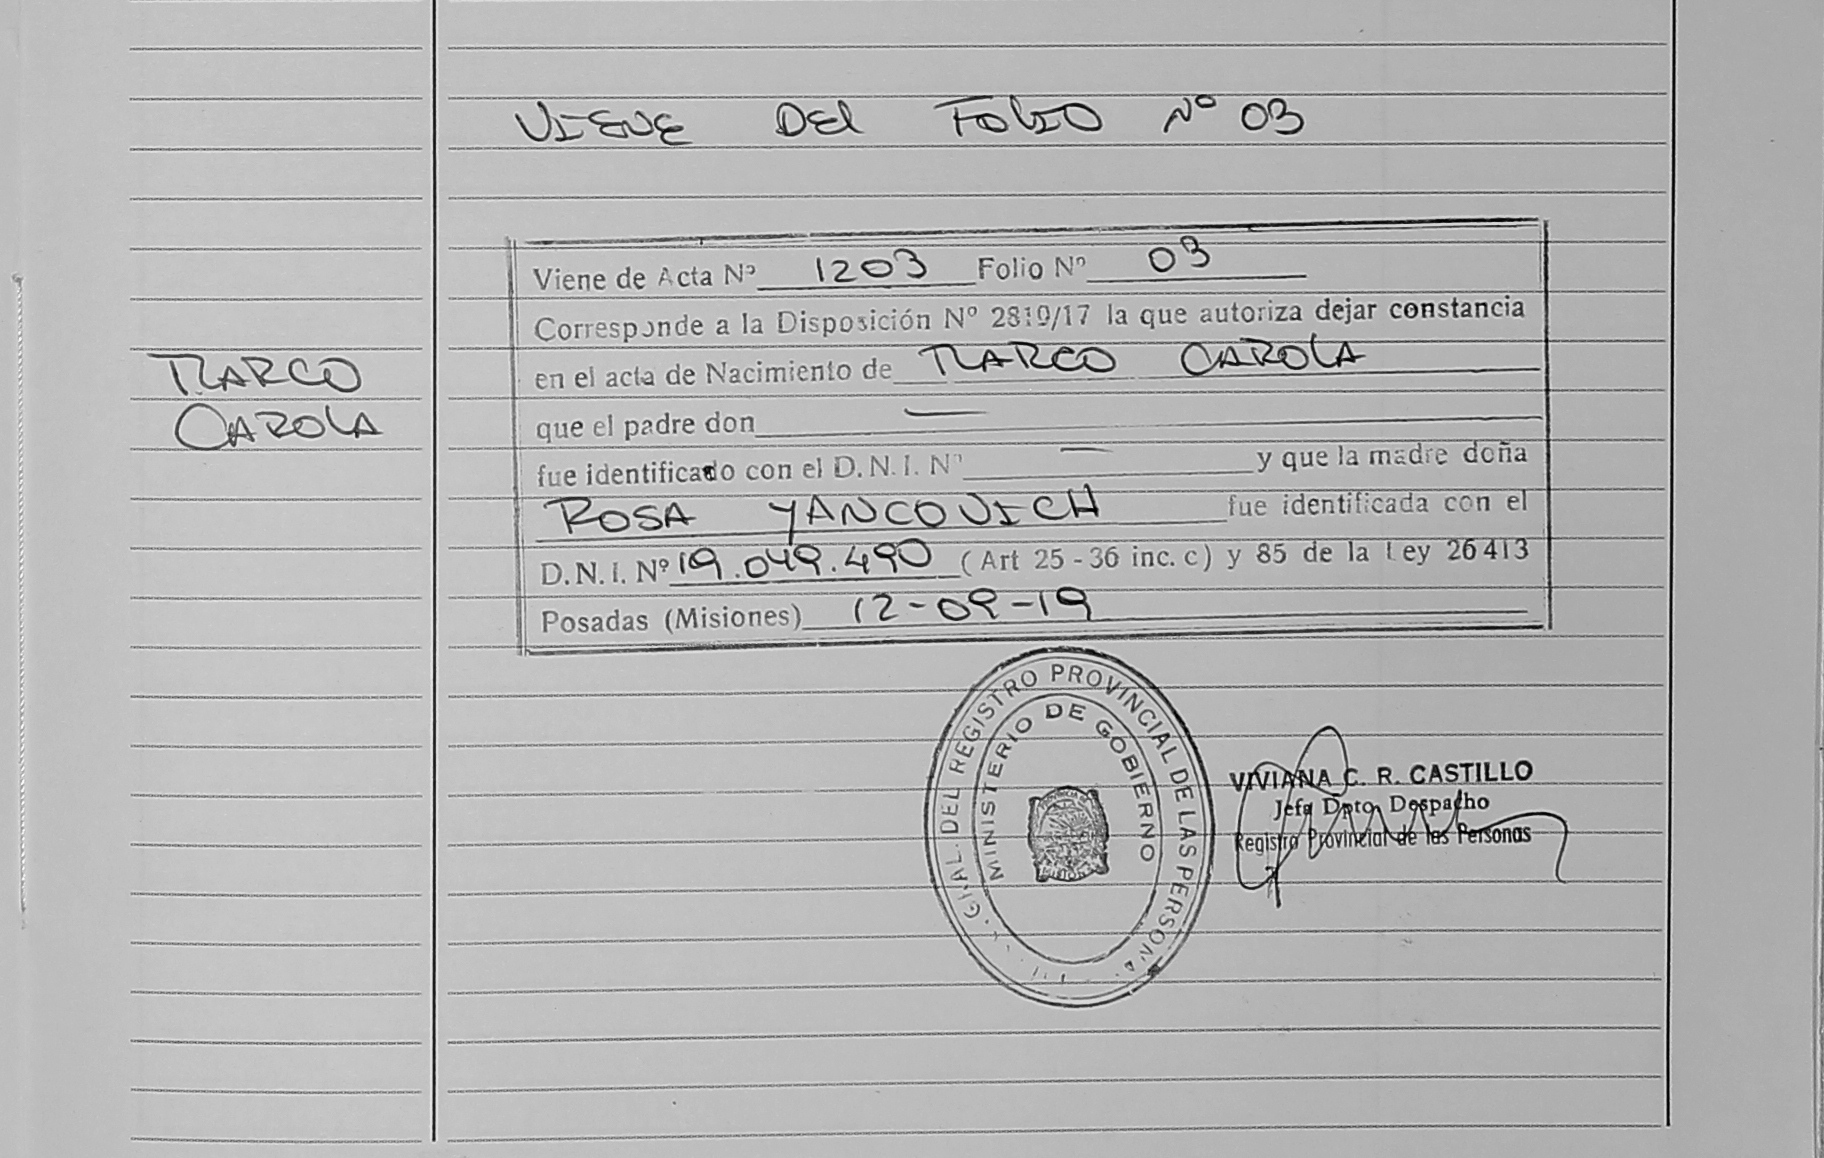 VIENE DEL FOLIO Nº 03
Viene de Acta Nº 1203 Folio Nº 03
Corresponde a la Disposición Nº 2810/17 la que autoriza dejar constancia
en el acta de Nacimiento de MARCO CAROLA
que el padre don —
fue identificado con el D.N.I. Nº — y que la madre doña
ROSA YANCOVICH fue identificada con el
D.N.I. Nº 19.049.490 (Art 25-36 inc. c) y 85 de la Ley 26413
Posadas (Misiones) 12-09-19
MARCO
CAROLA
GRAL. DEL REGISTRO PROVINCIAL DE LAS PERSONA
MINISTERIO DE GOBIERNO
VIVIANA C. R. CASTILLO
Jefa Dpto. Despacho
Registro Provincial de las Personas